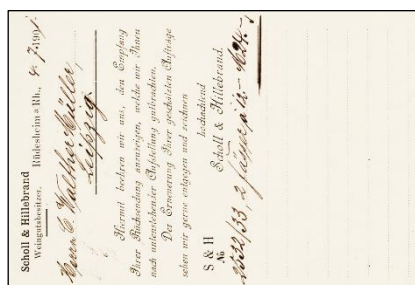 Scholl & Hillebrand
Weingutsbesitzer.
Rüdesheim a. Rh., 4. 7. 1901.
Herrn C. Walther Müller,
Leipzig
Hiermit beehren wir uns, den Empfang
Ihrer Rücksendung anzuzeigen, welche wir Ihnen
nach untenstehender Aufstellung gutbrachten.
Der Erneuerung Ihrer geschätzten Aufträge
sehen wir gerne entgegen und zeichnen
hochachtend
Scholl & Hillebrand.
S & H
№
2532/33, 2 24.-